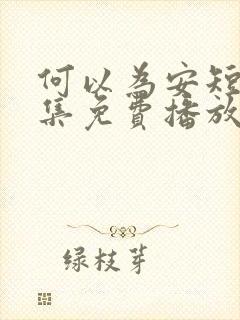 何以為安短
集免費播放
绿枝芽